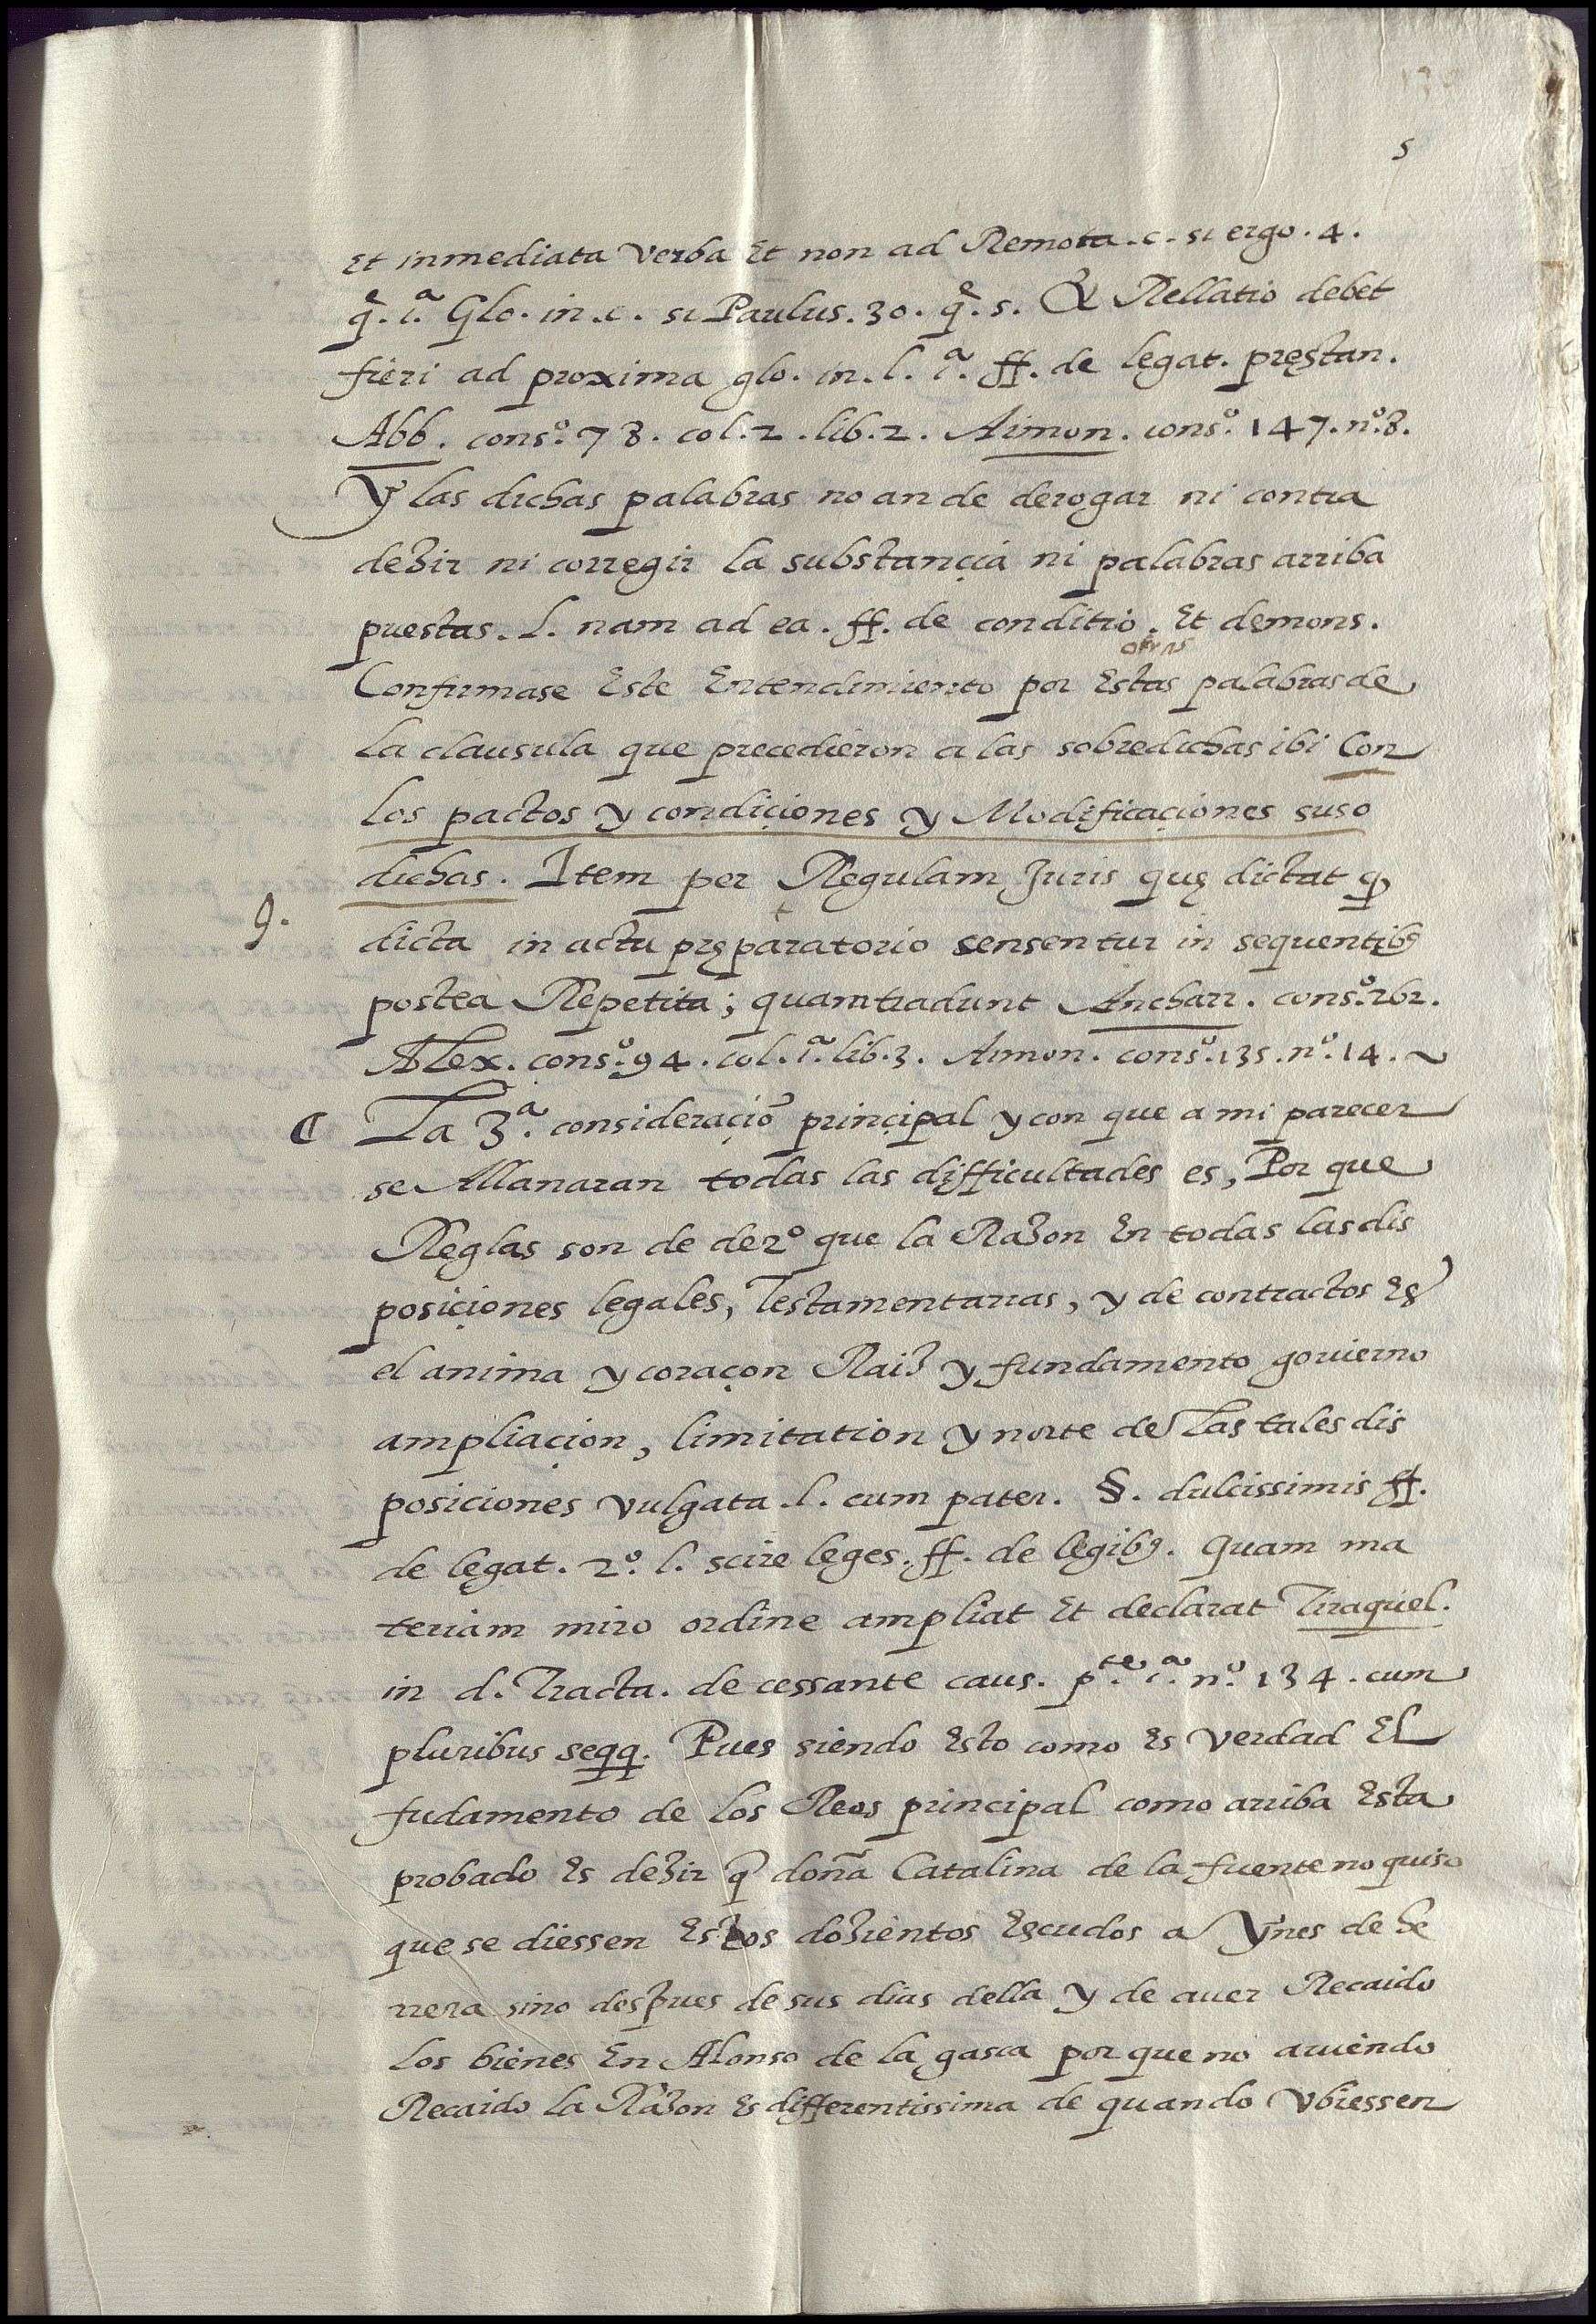 5
et inmediata verba et non ad Remota. c. si ergo. 4.
q̃e. 1ª. Glo. in. c. si Paulus. 30. q̃e. 5. & Rellatio debet
fieri ad proxima glo. in. l. 1ª. ff. de legat. pręstan.
Abb. consº. 78. col. 2. lib. 2. Aimon. consº. 147. nº. 8.
Y las dichas palabras no an de derogar ni contra
dezir ni corregir la substançia ni palabras arriba
puestas. l. nam ad ea. ff. de conditio. et demons.
otras
Confirmase este entendimiento por estas palabras de
la clausula que precedieron a las sobredichas ibi Con
los pactos y condiçiones y Modificaçiones suso
dichas. Item per Regulam Juris quę dictat q̃
9.
dicta in actu pręparatorio sensentur in sequentibꝰ
postea Repetita; quam tradunt Ancharr. consº. 262.
Alex. consº. 94. col. 1ª. lib. 3. Aimon. consº. 135. nº. 14.
La 3ª. consideraçiõ prinçipal y con que a mi parecer
se Allanaran todas las difficultades es, Por que
Reglas son de derº que la Razon en todas las dis
posiçiones legales, Testamentarias, y de contractos es
el anima y coraçon Raiz y fundamento govierno
ampliaçion, limitation y norte de las tales dis
posiciones vulgata. l. cum pater. §. dulcissimis ff.
de legat. 2º. l. scire leges. ff. de legibꝰ. quam ma
teriam miro ordine ampliat et declarat Tiraquel.
in d. Tracta. de cessante caus. pte. 1ª. nº. 134. cum
pluribus seqq. Pues siendo esto como es verdad el
fudamento de los Reos principal como arriba esta
probado es dezir q̃ doña Catalina de la fuente no quiso
que se diessen estos dozientos escudos a Ynes de he
rrera sino despues de sus dias della y de auer Recaido
los bienes en Alonso de la gasca por que no auiendo
Recaido la Razon es differentissima de quando vbiessen